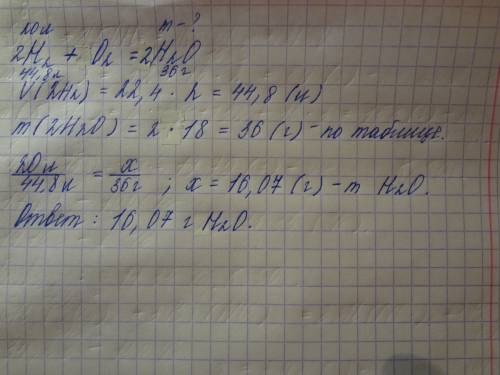 20л m-?
2H₂ + O₂ = 2H₂O
44,8л 36г
V(2H₂) = 22,4 · 2 = 44,8 (л)
m(2H₂O) = 2 · 18 = 36 (г) - по таблице.
20л/44,8л = x/36г ; x = 16,07 (г) - m H₂O.
Ответ : 16,07 г H₂O.